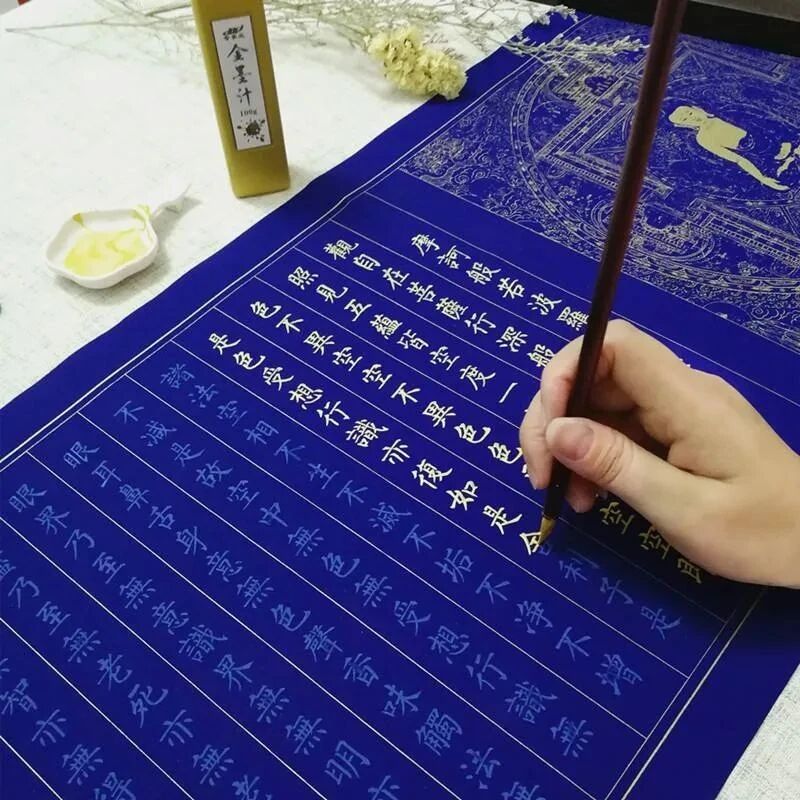 金墨汁
100g
摩訶般若波羅
觀自在菩薩行深般
照見五蘊皆空度一
色不異空空不異色色 空空即
是色受想行識亦復如是舍利子是
諸法空相不生不滅不垢不淨不增
不減是故空中無色無受想行識無
眼耳鼻舌身意無色聲香味觸法無
眼界乃至無意識界無無明
盡乃至無老死亦無老
智亦無得